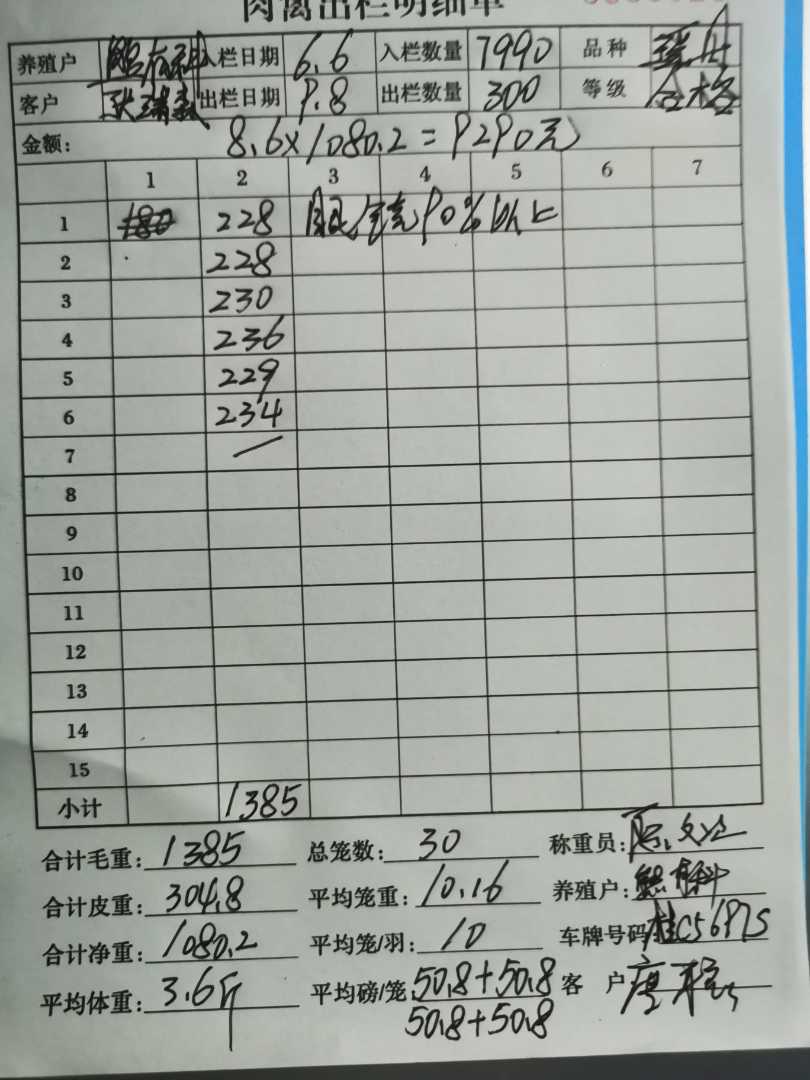 肉禽出栏明细单
养殖户 入栏日期 6.6 入栏数量 7990 品种
客户 张瑞 出栏日期 9.8 出栏数量 300 等级 合格
金额: 8.6×1080.2=9290元
1 2 3 4 5 6 7
1 180 228 90%以上
2 228
3 230
4 236
5 229
6 234
7 /
8
9
10
11
12
13
14
15
小计 1385
合计毛重: 1385 总笼数: 30 称重员:
合计皮重: 304.8 平均笼重: 10.16 养殖户:
合计净重: 1080.2 平均笼/羽: 10 车牌号码 桂C5697S
平均体重: 3.6斤 平均磅/笼: 50.8+50.8 客 户
50.8+50.8